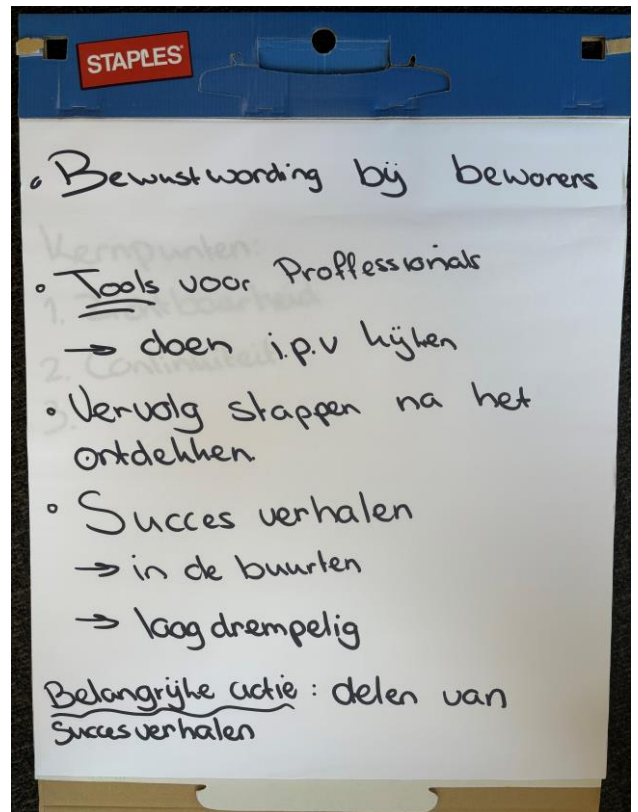 STAPLES
• Bewustwording bij bewoners
Kernpunten:
• Tools voor Proffessionals
1. Zichtbaarheid
→ doen i.p.v kijken
2. Continuiteit
3.
• Vervolg stappen na het
ontdekken.
• Succes verhalen
→ in de buurten
→ laagdrempelig
Belangrijke actie: delen van
Succesverhalen